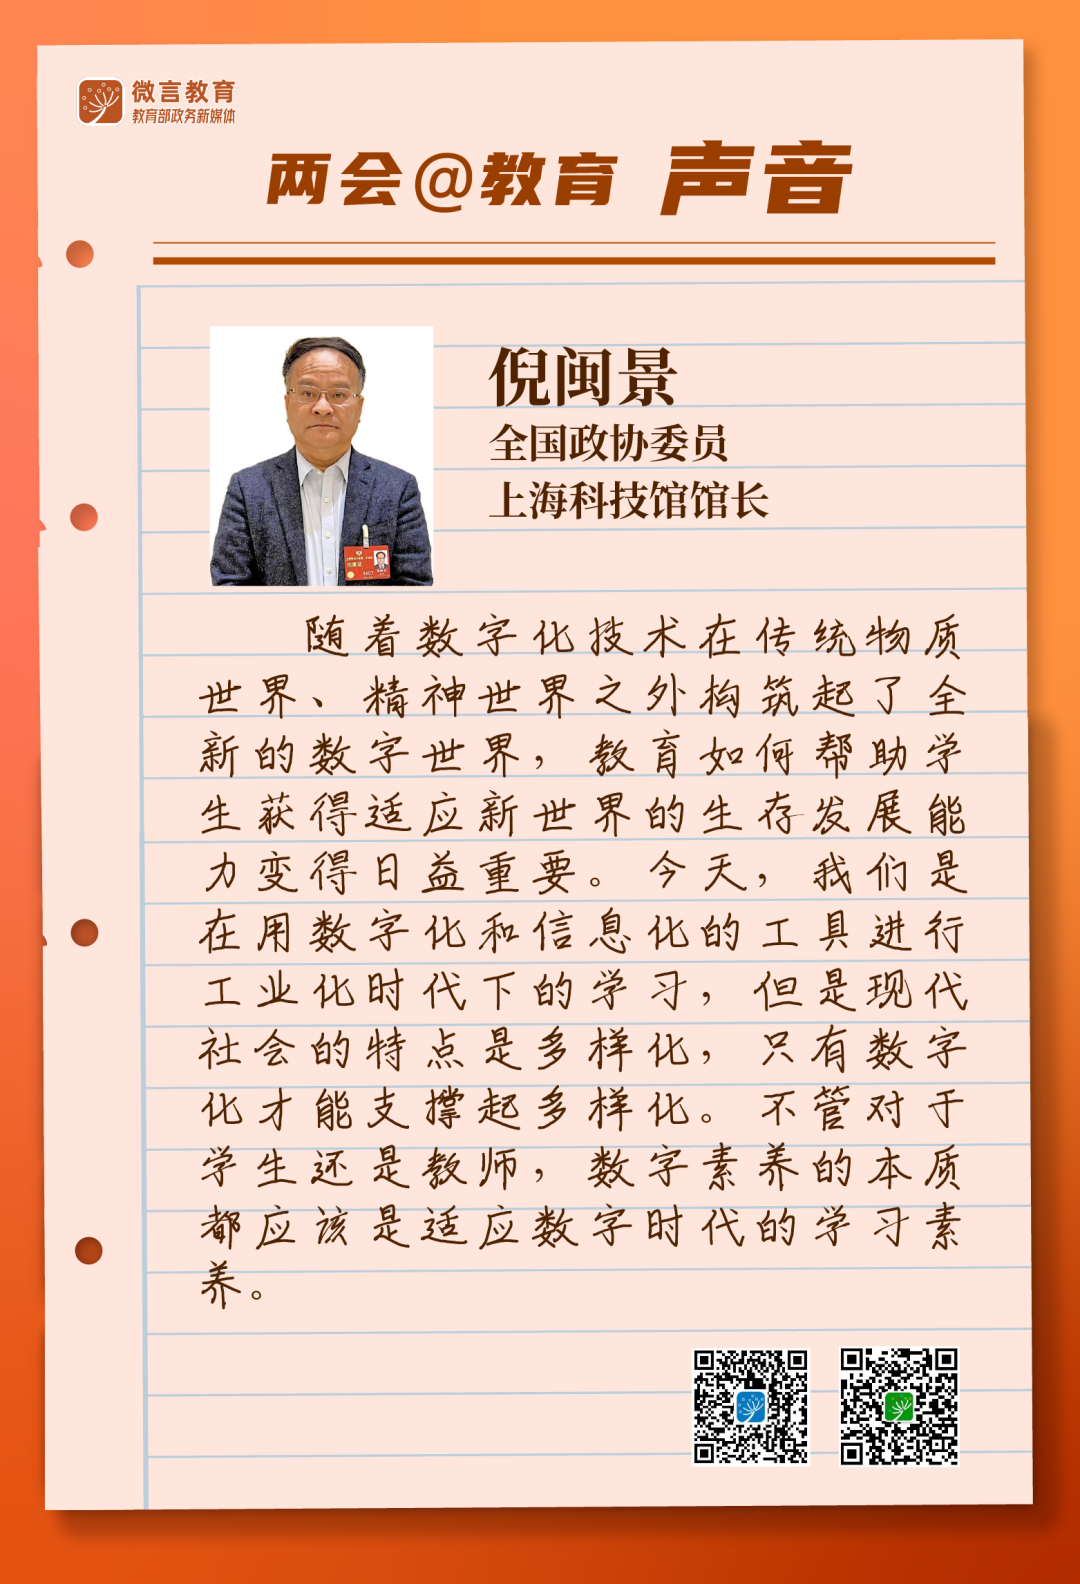 微言教育
教育部政务新媒体
两会@教育 声音
倪闽景
全国政协委员
上海科技馆馆长
随着数字化技术在传统物质
世界、精神世界之外构筑起了全
新的数字世界，教育如何帮助学
生获得适应新世界的生存发展能
力变得日益重要。今天，我们是
在用数字化和信息化的工具进行
工业化时代下的学习，但是现代
社会的特点是多样化，只有数字
化才能支撑起多样化。不管对于
学生还是教师，数字素养的本质
都应该是适应数字时代的学习素
养。